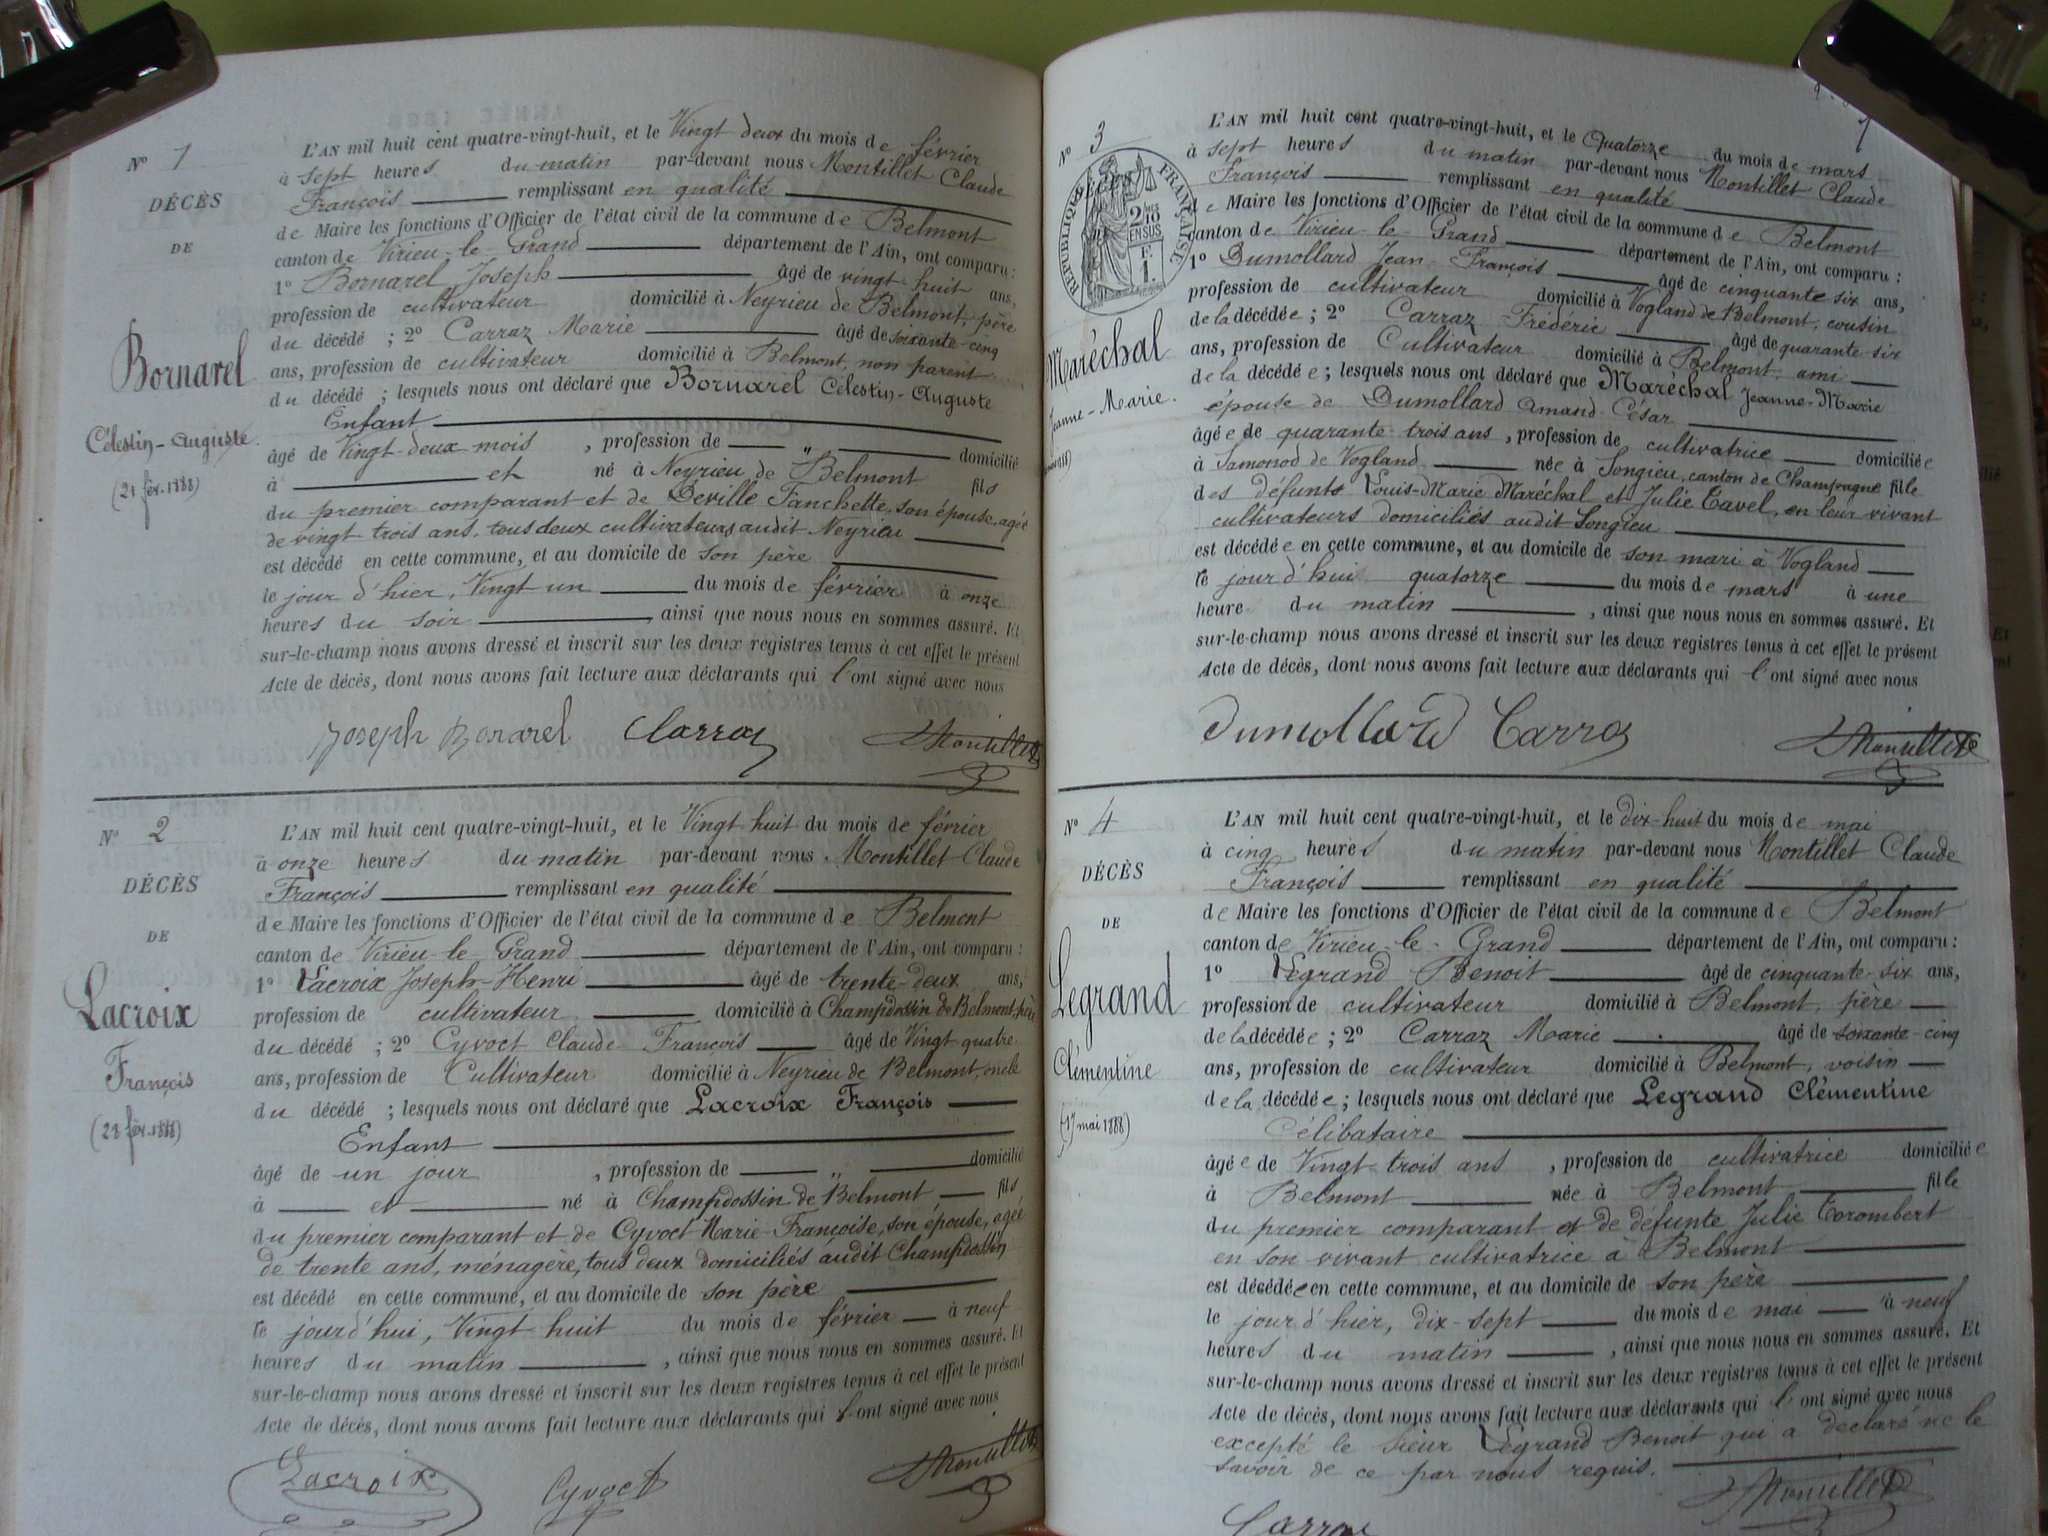 L'AN mil huit cent quatre-vingt-huit, et le Vingt deux du mois de février
N° 1
à sept heures du matin par-devant nous Montillet Claude
François remplissant en qualité
DÉCÈS
de Maire les fonctions d'Officier de l'état civil de la commune de Belmont
DE
canton de Virieu-le-Grand département de l'Ain, ont comparu :
1° Bornarel Joseph âgé de vingt huit ans,
profession de cultivateur domicilié à Neyrieu de Belmont, père
du décédé ; 2° Carraz Marie âgé de soixante-cinq
Bornarel
ans, profession de cultivateur domicilié à Belmont, non parent
du décédé ; lesquels nous ont déclaré que Bornarel Célestin-Auguste
Célestin-Auguste.
Enfant
âgé de Vingt-deux mois , profession de " domicilié
(21 fév. 1888)
à et né à Neyrieu de Belmont fils
du premier comparant et de Déville Fanchette, son épouse, agée
de vingt trois ans, tous deux cultivateurs audit Neyrieu
est décédé en cette commune, et au domicile de son père
le jour d'hier, Vingt un du mois de février à onze
heures du soir , ainsi que nous nous en sommes assuré. Et
sur-le-champ nous avons dressé et inscrit sur les deux registres tenus à cet effet le présent
Acte de décès, dont nous avons fait lecture aux déclarants qui l'ont signé avec nous
Joseph Bonarel Carraz Montillet
N° 2
L'AN mil huit cent quatre-vingt-huit, et le Vingt huit du mois de février
à onze heures du matin par-devant nous Montillet Claude
DÉCÈS
François remplissant en qualité
de Maire les fonctions d'Officier de l'état civil de la commune de Belmont
DE
canton de Virieu-le-Grand département de l'Ain, ont comparu :
1° Lacroix Joseph-Henri âgé de trente-deux ans,
Lacroix
profession de cultivateur domicilié à Champdossin de Belmont, père
du décédé ; 2° Cyvoct Claude François âgé de Vingt quatre
François
ans, profession de Cultivateur domicilié à Neyrieu de Belmont, oncle
du décédé ; lesquels nous ont déclaré que Lacroix François
(28 fév. 1888)
Enfant
âgé de un jour , profession de " domicilié
à et né à Champdossin de Belmont fils
du premier comparant et de Cyvoct Marie-Françoise, son épouse, agée
de trente ans, ménagère, tous deux domiciliés audit Champdossin
est décédé en cette commune, et au domicile de son père
le jourd'hui, Vingt huit du mois de février à neuf
heures du matin , ainsi que nous nous en sommes assuré. Et
sur-le-champ nous avons dressé et inscrit sur les deux registres tenus à cet effet le présent
Acte de décès, dont nous avons fait lecture aux déclarants qui l'ont signé avec nous
Lacroix Cyvoct Montillet
N° 3
L'AN mil huit cent quatre-vingt-huit, et le Quatorze du mois de mars
à sept heures du matin par-devant nous Montillet Claude
François remplissant en qualité
RÉPUBLIQUE FRANÇAISE
2/10 EN SUS
F. 1.
de Maire les fonctions d'Officier de l'état civil de la commune de Belmont
canton de Virieu-le-Grand département de l'Ain, ont comparu :
1° Dumollard Jean-François âgé de cinquante six ans,
profession de cultivateur domicilié à Vogland de Belmont, cousin
de la décédée ; 2° Carraz Frédéric âgé de quarante-six
Maréchal
ans, profession de Cultivateur domicilié à Belmont, ami
de la décédée ; lesquels nous ont déclaré que Maréchal Jeanne-Marie
Jeanne-Marie.
épouse de Dumollard Amand-César
âgée de quarante-trois ans , profession de cultivatrice domiciliée
à Samonod de Vogland née à Songieu, canton de Champagne fille
des défunts Louis-Marie Maréchal et Julie Tavel, en leur vivant
cultivateurs domiciliés audit Songieu
est décédée en cette commune, et au domicile de son mari à Vogland
le jourd'hui quatorze du mois de mars à une
heure du matin , ainsi que nous nous en sommes assuré. Et
sur-le-champ nous avons dressé et inscrit sur les deux registres tenus à cet effet le présent
Acte de décès, dont nous avons fait lecture aux déclarants qui l'ont signé avec nous
Dumollard Carraz Montillet
N° 4
L'AN mil huit cent quatre-vingt-huit, et le dix-huit du mois de mai
à cinq heures du matin par-devant nous Montillet Claude
DÉCÈS
François remplissant en qualité
de Maire les fonctions d'Officier de l'état civil de la commune de Belmont
DE
canton de Virieu-le-Grand département de l'Ain, ont comparu :
1° Legrand Benoit âgé de cinquante-six ans,
Legrand
profession de cultivateur domicilié à Belmont, père
de la décédée ; 2° Carraz Marie âgé de soixante-cinq
Clémentine
ans, profession de cultivateur domicilié à Belmont, voisin
de la décédée ; lesquels nous ont déclaré que Legrand Clémentine
(17 mai 1888)
Célibataire
âgée de Vingt-trois ans , profession de cultivatrice domiciliée
à Belmont née à Belmont fille
du premier comparant et de défunte Julie Torombert
en son vivant cultivatrice à Belmont
est décédée en cette commune, et au domicile de son père
le jour d'hier, dix-sept du mois de mai à neuf
heures du matin , ainsi que nous nous en sommes assuré. Et
sur-le-champ nous avons dressé et inscrit sur les deux registres tenus à cet effet le présent
Acte de décès, dont nous avons fait lecture aux déclarants qui l'ont signé avec nous
excepté le sieur Legrand Benoit qui a déclaré ne le
savoir de ce par nous requis.
Carraz Montillet